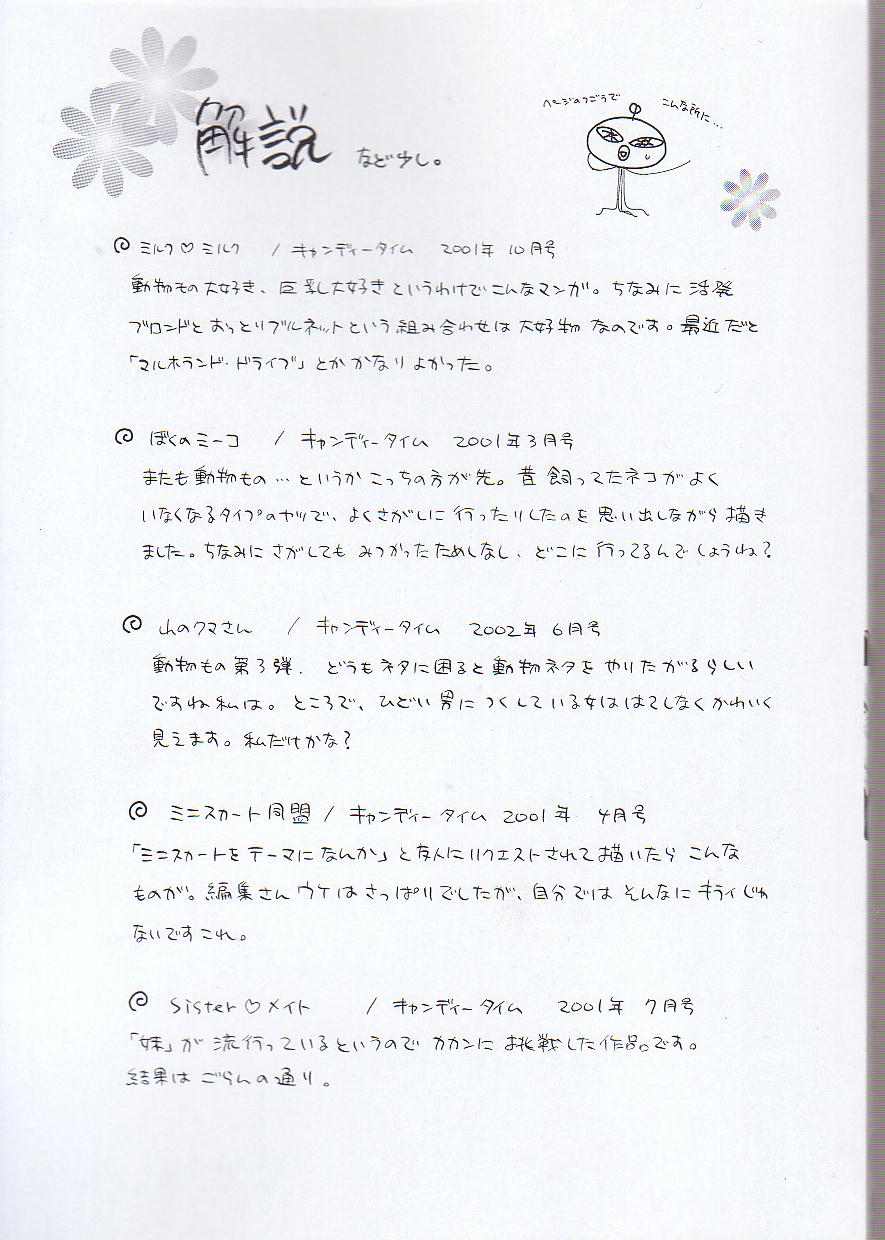 解説 など少し。
ページのつごうで こんな所に…
ミルク♡ミルク / キャンディータイム 2001年 10月号
動物もの大好き、巨乳大好きというわけでこんなマンガ。ちなみに活発
ブロンドとおっとりブルネットという組み合わせは大好物なのです。最近だと
「マルホランド・ドライブ」とかかなりよかった。
ぼくのミーコ / キャンディータイム 2001年3月号
またも動物もの…というかこっちの方が先。昔飼ってたネコがよく
いなくなるタイプのヤツで、よくさがしに行ったりしたのを思い出しながら描き
ました。ちなみにさがしてもみつかったためしなし、どこに行ってるんでしょうね?
山のクマさん / キャンディータイム 2002年 6月号
動物もの第3弾. どうもネタに困ると動物ネタをやりたがるらしい
ですね私は。ところで、ひどい男につくしている女ははてしなくかわいく
見えます。私だけかな?
ミニスカート同盟 / キャンディータイム 2001年 4月号
「ミニスカートをテーマになんか」と友人にリクエストされて描いたらこんな
ものが。編集さんウケはさっぱりでしたが、自分ではそんなにキライじゃ
ないですこれ。
Sister♡メイト / キャンディータイム 2001年 7月号
「妹」が流行っているというのでカカンにお挑戦した作品。です。
結果はごらんの通り。